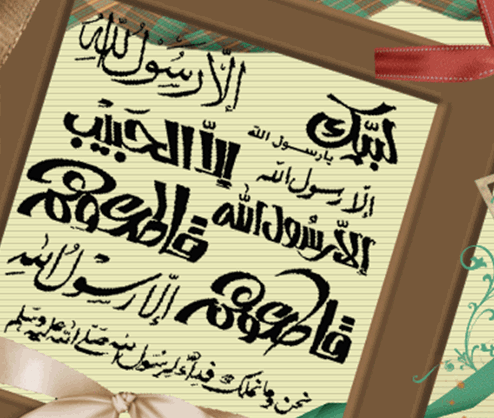 إلا رسول الله
لبيك
يا رسول الله
إلا الحبيب
إلا رسول الله
إلا رسول الله
قاطعوهم
إلا رسول الله
قاطعوهم
نحن وما نملك فداء لرسول الله صلى الله عليه وسلم